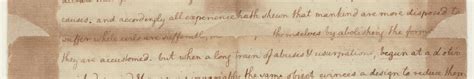 causes. and accordingly all experience hath shewn that mankind are more disposed to
suffer while evils are sufferable, themselves by abolishing the forms
they are accustomed. but when a long train of abuses & usurpations, begun at a
the same object, evinces a design to reduce